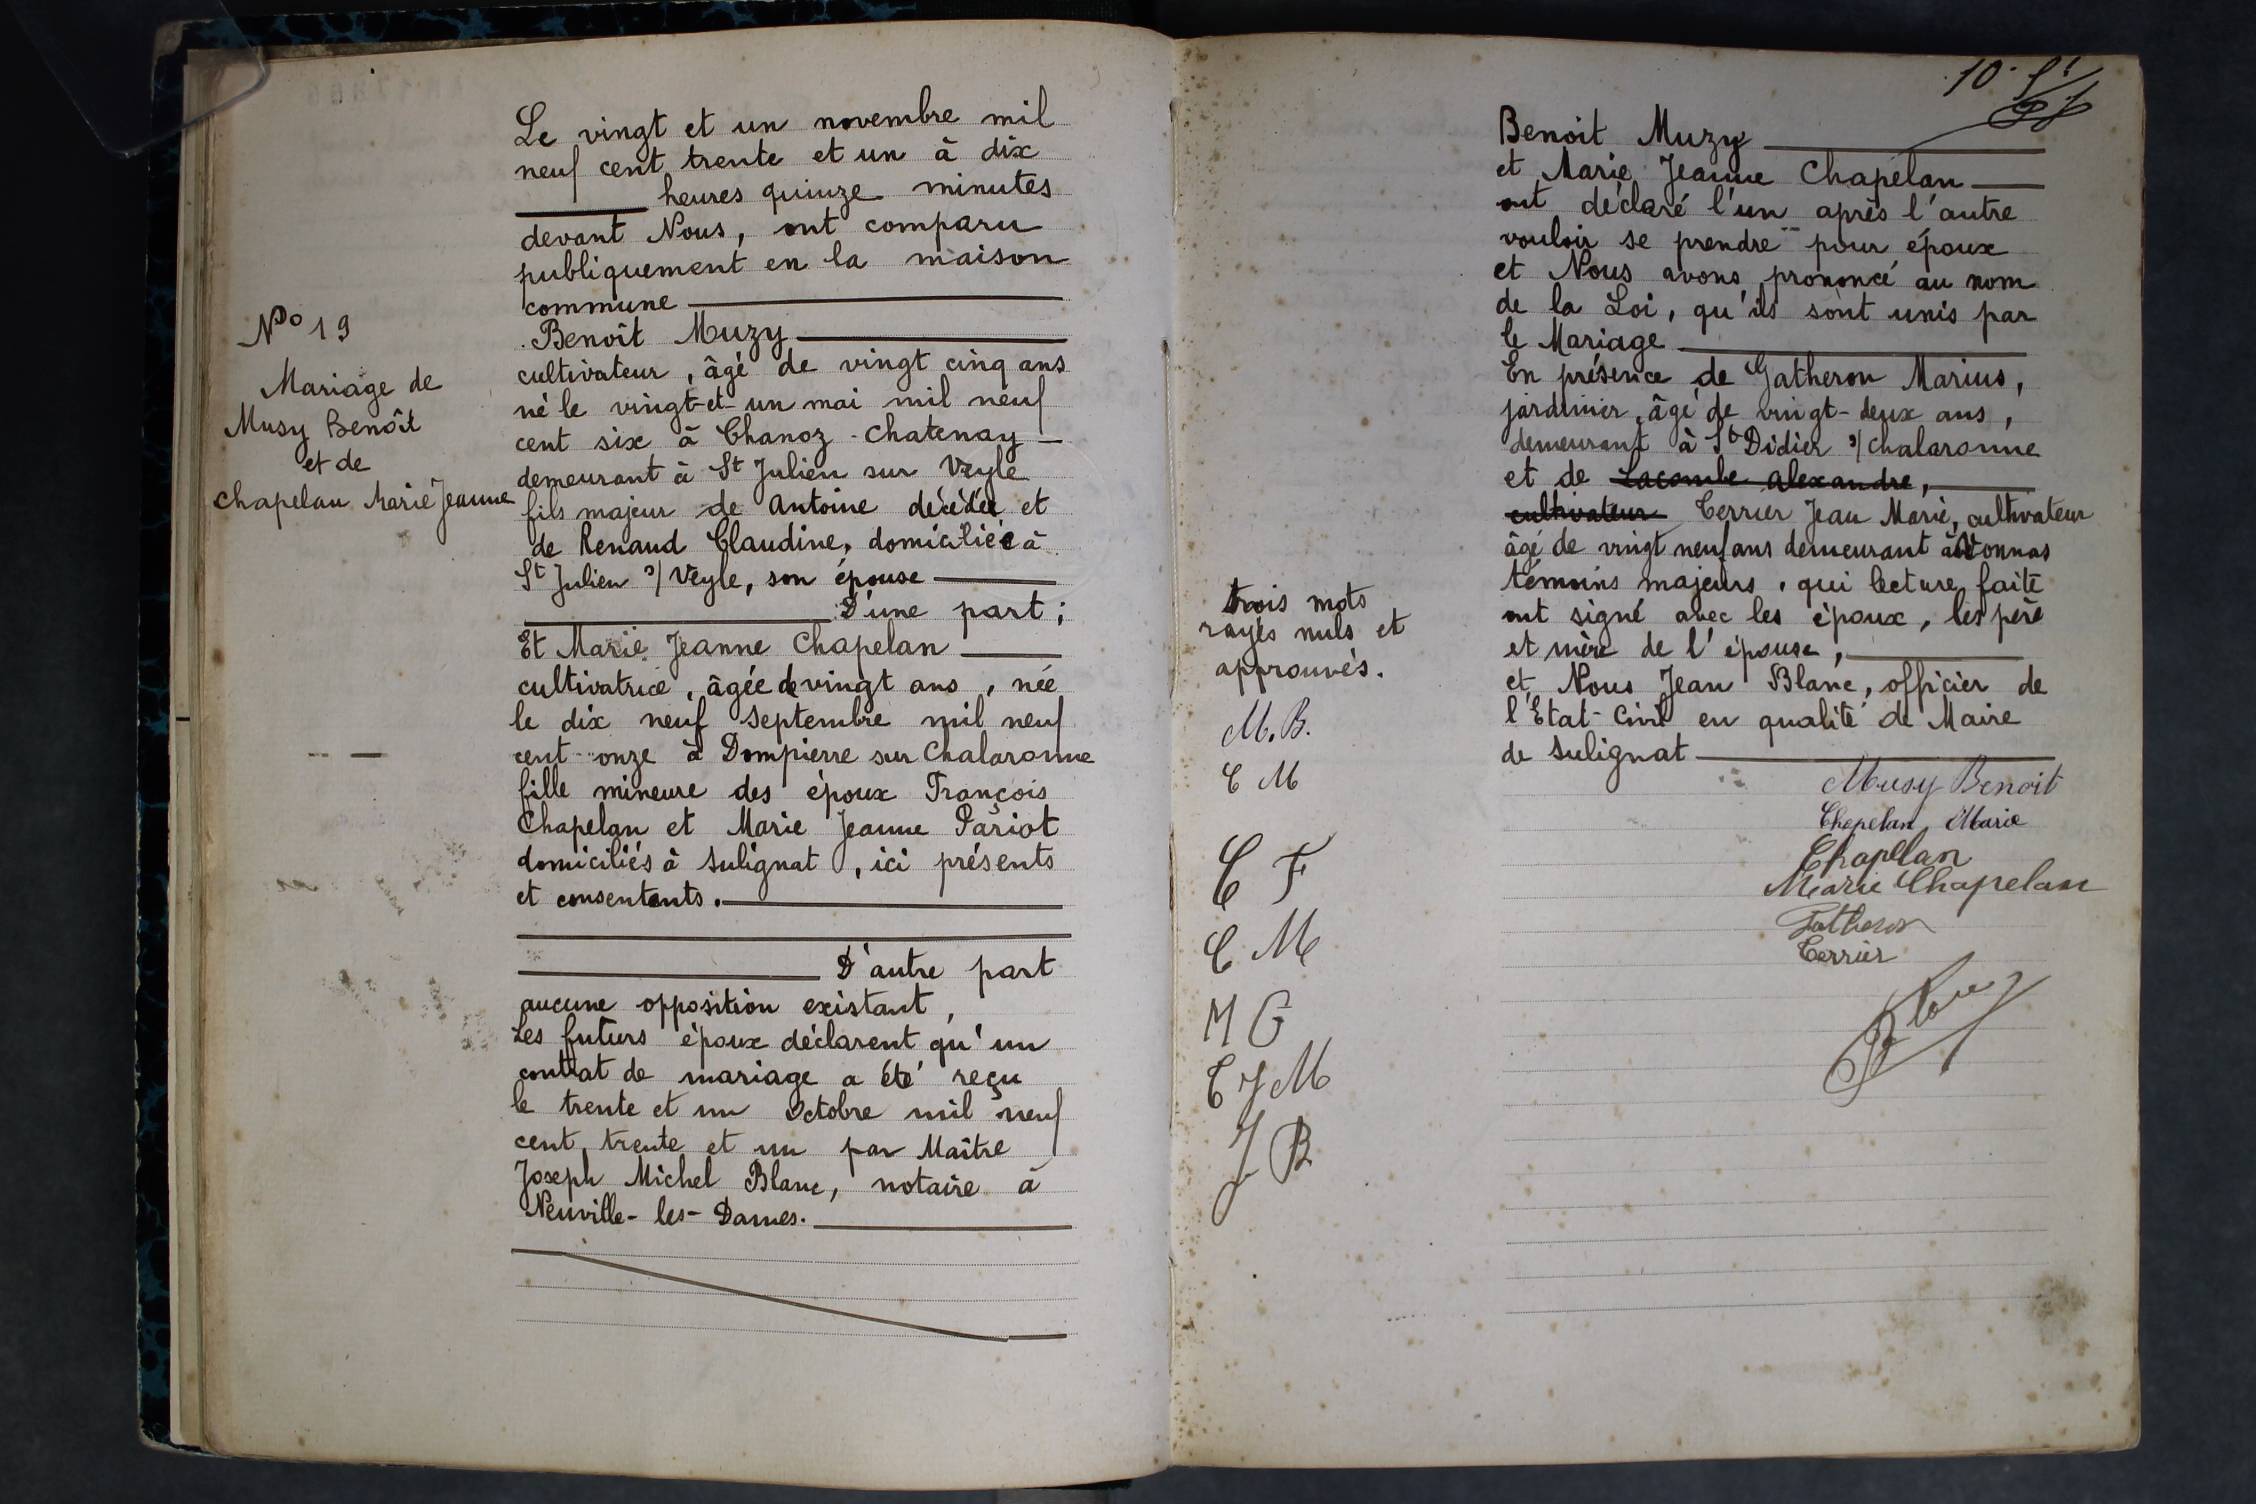 N° 19
Mariage de
Musy Benoît
et de
Chapelan Marie Jeanne
Le vingt et un novembre mil
neuf cent trente et un à dix
heures quinze minutes
devant Nous, ont comparu
publiquement en la maison
commune
Benoît Muzy
cultivateur, âgé de vingt cinq ans
né le vingt-et-un mai mil neuf
cent six à Chanoz-Chatenay
demeurant à St Julien sur Veyle
fils majeur de Antoine décédée et
de Renaud Claudine, domiciliée à
St Julien s/ Veyle, son épouse
D'une part ;
Et Marie Jeanne Chapelan
cultivatrice, âgée de vingt ans, née
le dix neuf septembre mil neuf
cent onze à Dompierre sur Chalaronne
fille mineure des époux François
Chapelan et Marie Jeanne Pariot
domiciliés à Sulignat, ici présents
et consentants.
D'autre part
aucune opposition existant,
Les futurs époux déclarent qu'un
contrat de mariage a été reçu
le trente et un Octobre mil neuf
cent trente et un par Maître
Joseph Michel Blanc, notaire à
Neuville-les-Dames.
10
Benoit Muzy
et Marie Jeanne Chapelan
ont déclaré l'un après l'autre
vouloir se prendre pour époux
et Nous avons prononcé au nom
de la Loi, qu'ils sont unis par
le Mariage
En présence de Gatheron Marius,
jardinier, âgé de vingt-deux ans,
demeurant à St Didier s/ Chalaronne
et de Lacombe Alexandre,
cultivateur Terrier Jean Marie, cultivateur
âgé de vingt neuf ans demeurant à Vonnas
témoins majeurs, qui lecture faite
ont signé avec les époux, les père
et mère de l'épouse,
et Nous Jean Blanc, officier de
l'Etat-Civil en qualité de Maire
de Sulignat
trois mots
rayés nuls et
approuvés.
M. B.
C M
C F
C M
M G
T J M
J B
Musy Benoit
Chapelan Marie
Chapelan
Marie Chapelan
Gatheron
Terrier
Blanc